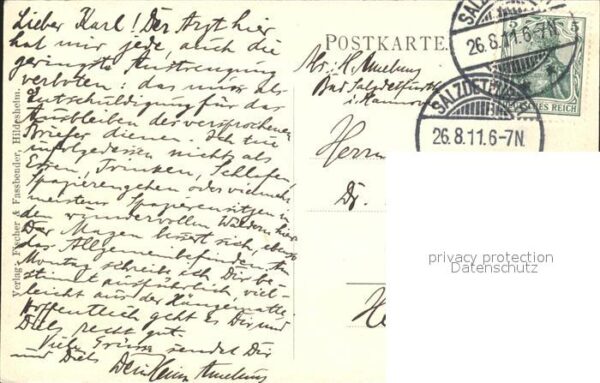 Lieber Karl! Der Arzt hier
hat mir jede, auch die
geringste Anstrengung
verboten: das muss als
Entschuldigung für das
Ausbleiben der versprochenen
Briefe dienen. Ich tue
infolgedessen nichts als
Essen, Trinken, Schlafen,
Spazierengehen oder vielmehr
meistens Spazierensitzen in
den wundervollen Wäldern hier.
Der Magen bessert sich, ebenso
das Allgemeinbefinden. Am
Montag schreib ich Dir be-
stimmt ausführlich, viel-
leicht aus der Hängematte.
Hoffentlich geht es Dir und
Diels recht gut.
Viele Grüsse sendet Dir
und Diels Dein Heinz Amelung
Verlag: Fischer & Fassbender, Hildesheim.
POSTKARTE.
Abs: H. Amelung
Bad Salzdetfurth
i. Hannover
Herrn
Dr.
SALZDETFURTH
26.8.11.6-7N.
5 5
DEUTSCHES REICH
SALZDETFURTH
26.8.11.6-7N.
privacy protection
Datenschutz